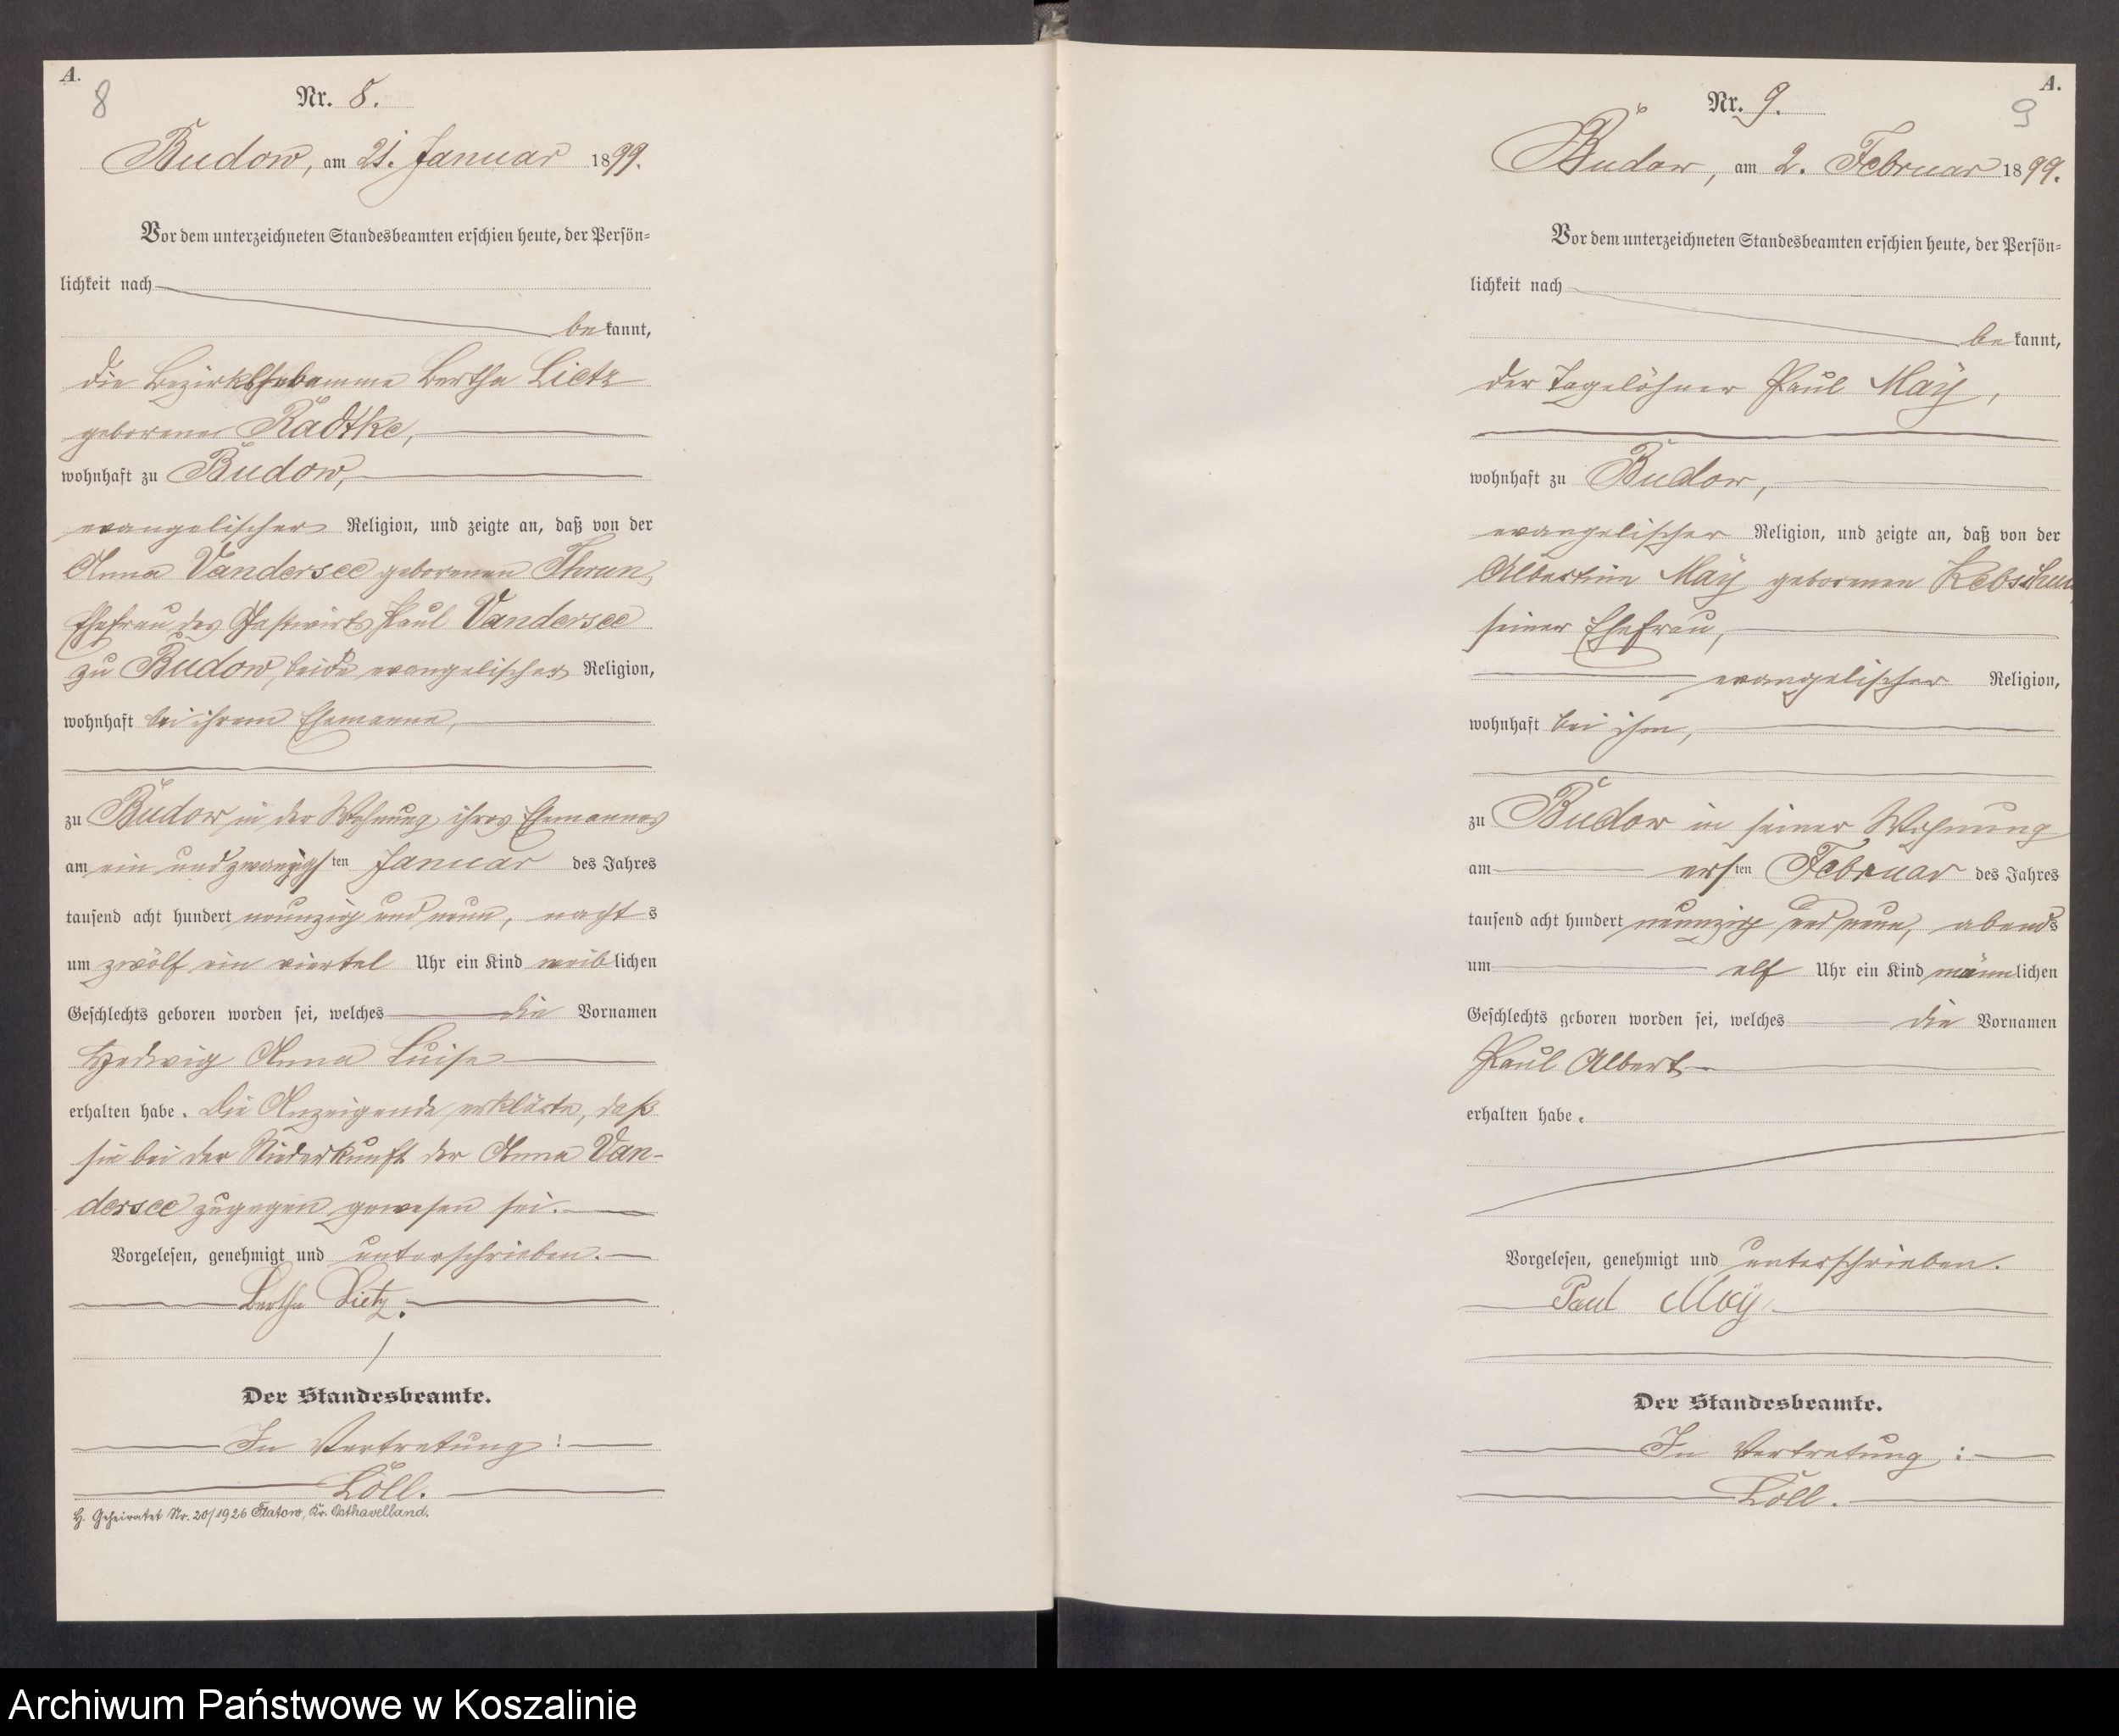 A.
8
Nr. 8.
Budow, am 21. Januar 1899.
Vor dem unterzeichneten Standesbeamten erschien heute, der Persön=
lichkeit nach
bekannt,
die Bezirkshebamme Bertha Lietz
geborene Radtke,
wohnhaft zu Budow,
evangelischer Religion, und zeigte an, daß von der
Anna Vandersee geborenen Thrun,
Ehefrau des Gastwirts Paul Vandersee
zu Budow, beide evangelischer Religion,
wohnhaft bei ihrem Ehemanne,
zu Budow in der Wohnung ihres Ehemannes
am ein und zwanzigsten Januar des Jahres
tausend acht hundert neunzig und neun, nachts
um zwölf ein viertel Uhr ein Kind weiblichen
Geschlechts geboren worden sei, welches die Vornamen
Hedwig Anna Luise
erhalten habe. Die Anzeigende erklärte, daß
sie bei der Niederkunft der Anna Van-
dersee zugegen gewesen sei.
Vorgelesen, genehmigt und unterschrieben.
Bertha Lietz.
Der Standesbeamte.
In Vertretung:
Löll.
H. Geheiratet Nr. 20/1926 Flatow, Kr. Osthavelland.
A.
9
Nr. 9.
Budow, am 2. Februar 1899.
Vor dem unterzeichneten Standesbeamten erschien heute, der Persön=
lichkeit nach
bekannt,
der Tagelöhner Paul Maÿ,
wohnhaft zu Budow,
evangelischer Religion, und zeigte an, daß von der
Albertine Maÿ geborenen
seiner Ehefrau,
evangelischer Religion,
wohnhaft bei ihm,
zu Budow in seiner Wohnung
am ersten Februar des Jahres
tausend acht hundert neunzig und neun, abends
um elf Uhr ein Kind männlichen
Geschlechts geboren worden sei, welches die Vornamen
Paul Albert
erhalten habe.
Vorgelesen, genehmigt und unterschrieben.
Paul Maÿ
Der Standesbeamte.
In Vertretung:
Löll.
Archiwum Państwowe w Koszalinie